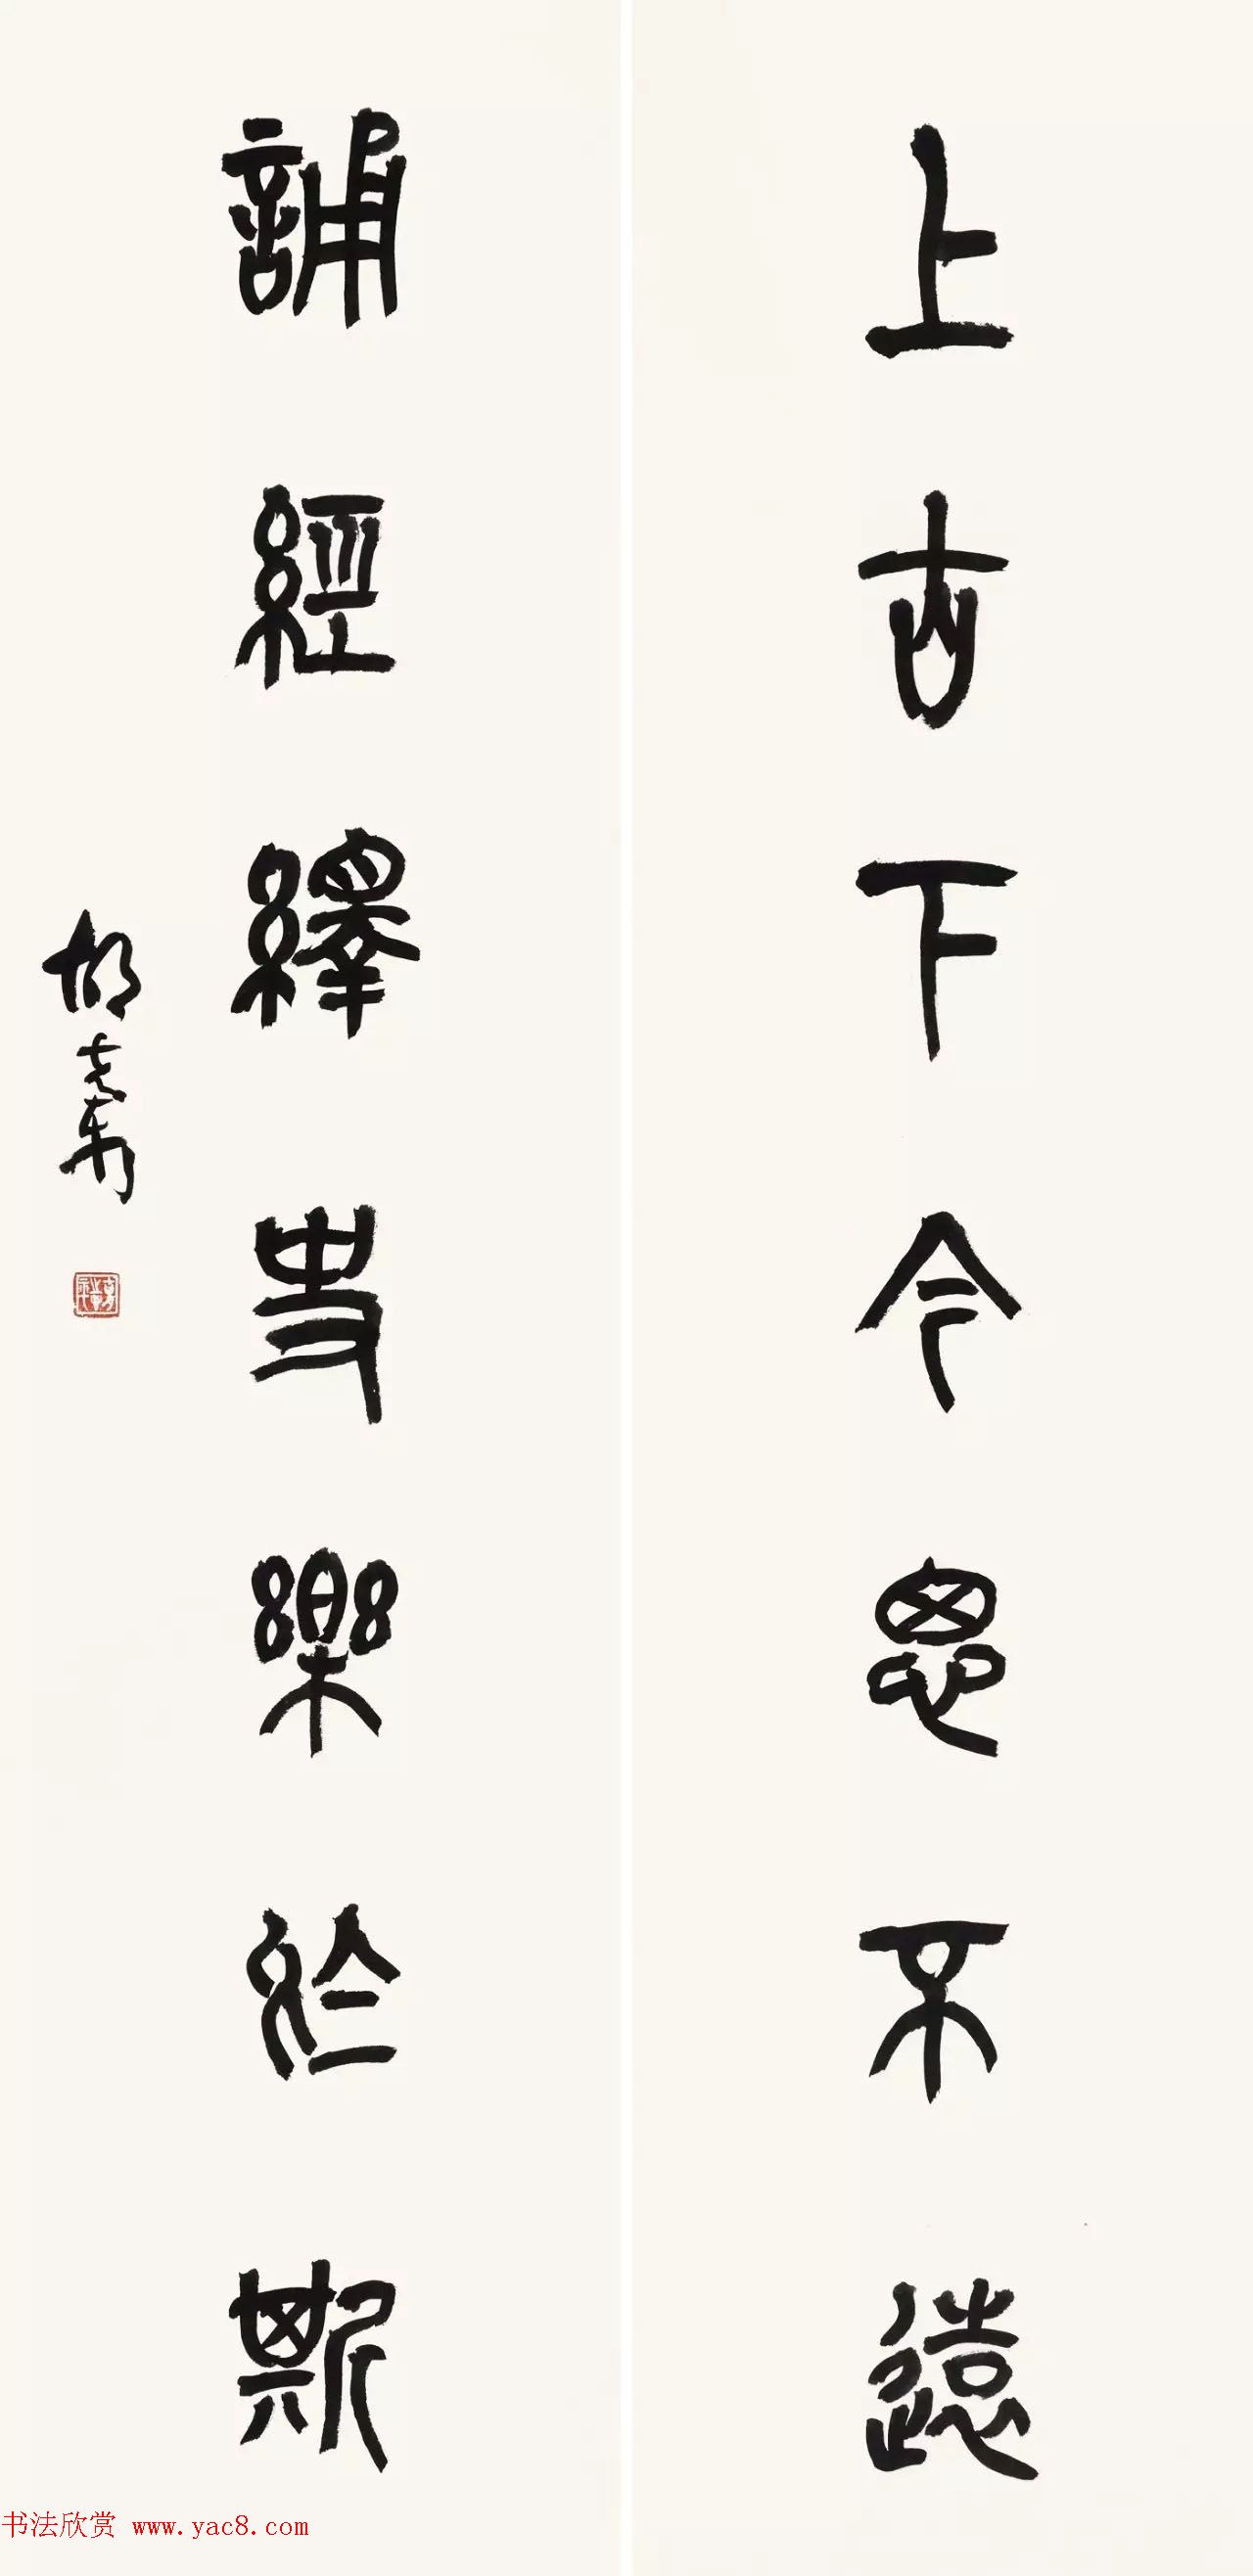 上古下今思不遠
誦經繹史樂於斯
胡
书法欣赏 www.yac8.com